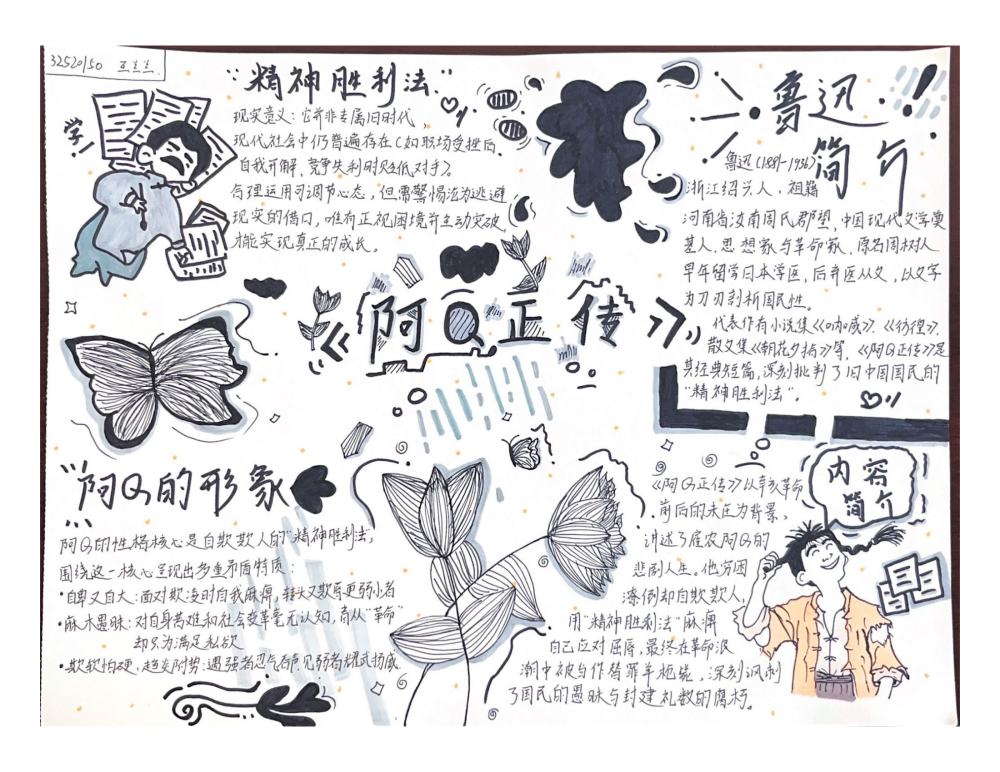 32520150 王生生
"精神胜利法"
学!
现实意义：它并非专属旧时代，
现代社会中仍普遍存在（如职场受挫后
自我开解、竞争失利时贬低对手）。
合理运用可调节心态，但需警惕沦为逃避
现实的借口，唯有正视困境并主动突破，
才能实现真正的成长。
鲁迅
简介
鲁迅（1881-1936）
浙江绍兴人，祖籍
河南省汝南周氏郡望，中国现代文学奠
基人、思想家与革命家，原名周树人
早年留学日本学医，后弃医从文，以文字
为刀刃剖析国民性。
代表作有小说集《呐喊》、《彷徨》、
散文集《朝花夕拾》等，《阿Q正传》是
其经典短篇，深刻批判了旧中国国民的
"精神胜利法"。
《阿Q正传》
阿Q的形象
阿Q的性格核心是自欺欺人的"精神胜利法"，
围绕这一核心呈现出多重矛盾特质：
·自卑又自大：面对欺凌时自我麻痹，转头又欺辱更弱小者
·麻木愚昧：对自身苦难和社会变革毫无认知，盲从"革命"
却只为满足私欲
·欺软怕硬、趋炎附势：遇强者忍气吞声见弱者耀武扬威
内容
简介
《阿Q正传》以辛亥革命
前后的未庄为背景，
讲述了雇农阿Q的
悲剧人生。他穷困
潦倒却自欺欺人，
用"精神胜利法"麻痹
自己应对屈辱，最终在革命浪
潮中被当作替罪羊枪毙。深刻讽刺
了国民的愚昧与封建礼数的腐朽。